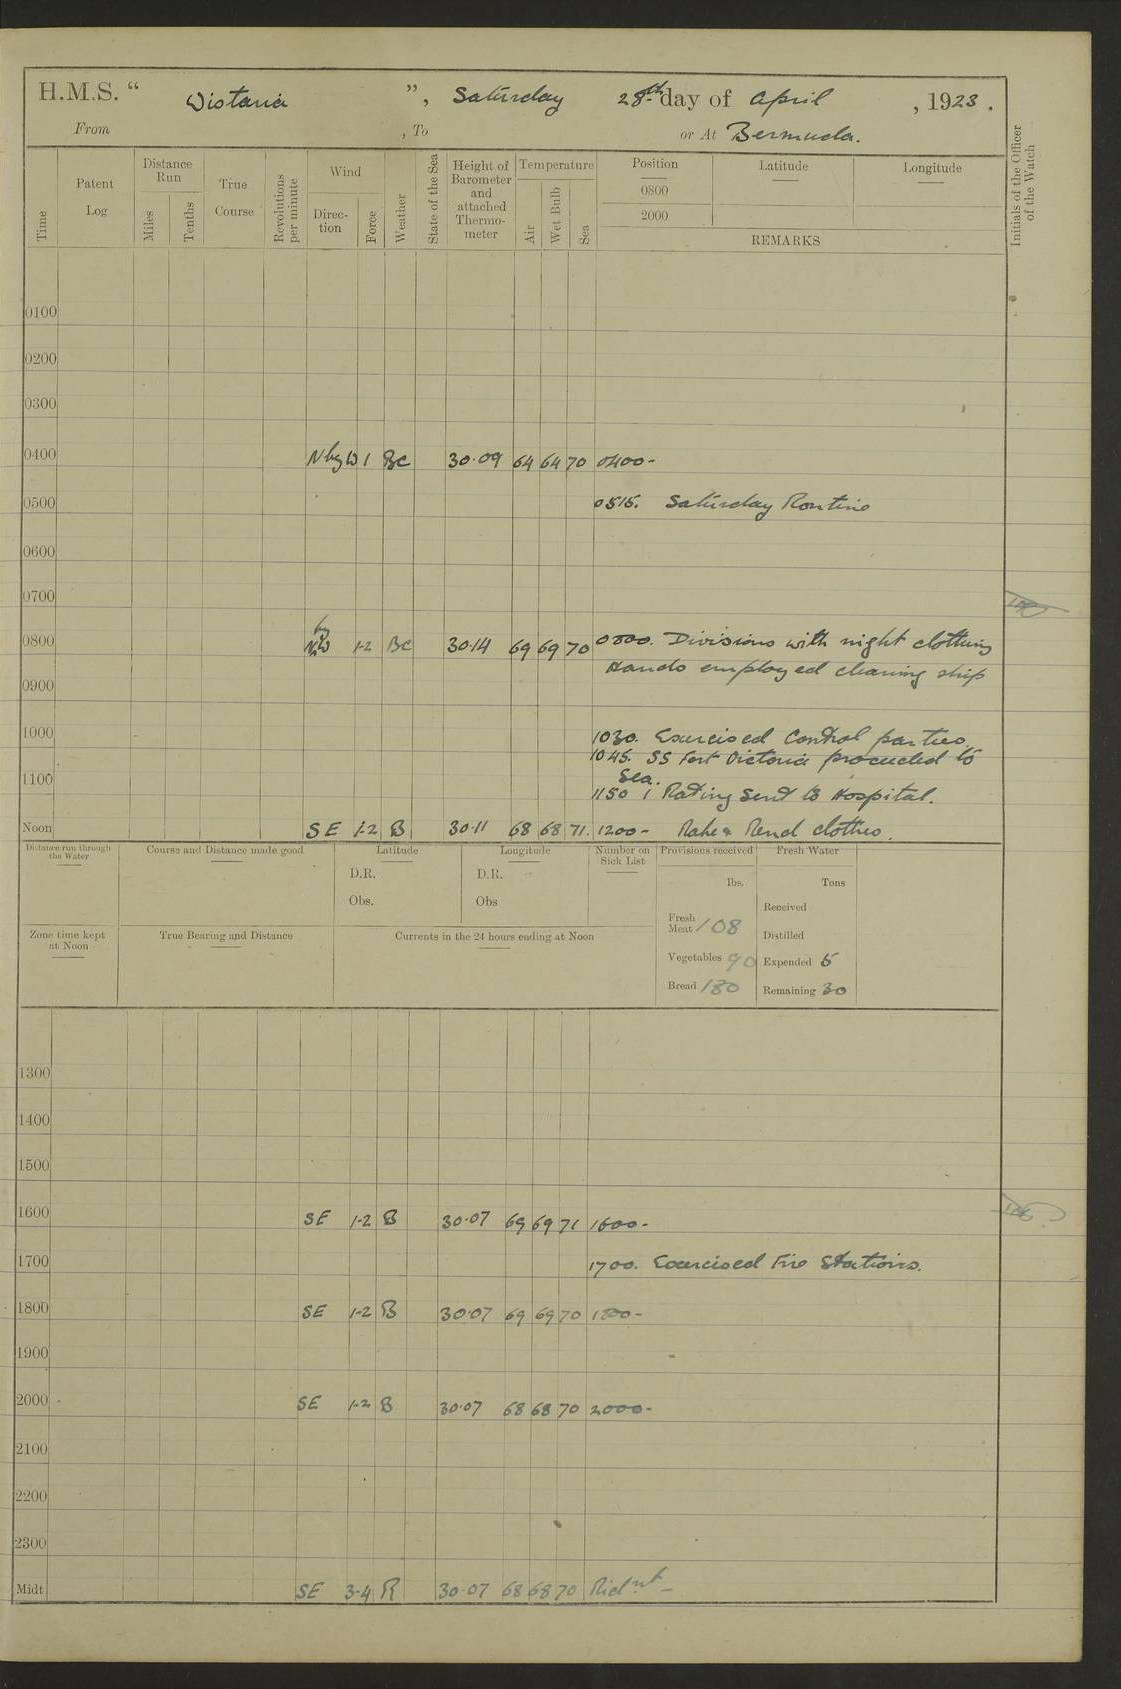 H.M.S. “ Wistaria ”, Saturday 28th day of April , 1923.
From , To or At Bermuda.
Time
Patent Log
Distance Run
Miles
Tenths
True Course
Revolutions per minute
Wind
Direc-tion
Force
Weather
State of the Sea
Height of Barometer and attached Thermo-meter
Temperature
Air
Wet Bulb
Sea
Position
Latitude
Longitude
0800
2000
REMARKS
Initials of the Officer of the Watch
0100
0200
0300
0400 N by W 1 BC 30.09 64 64 70 0400-
0500 0515. Saturday Routine
0600
0700
0800 N by W 1-2 BC 30.14 69 69 70 0800. Divisions with night clothing
Hands employed cleaning ship
0900
1000 1030. Exercised Control parties.
1045. SS Fort Victoria proceeded to
Sea.
1100 1150 1 Rating Sent to Hospital.
Noon SE 1-2 B 30.11 68 68 71. 1200- Make & Mend clothes.
Distance run through the Water
Course and Distance made good
Latitude
D.R.
Obs.
Longitude
D.R.
Obs
Number on Sick List
Provisions received
lbs.
Fresh Meat 108
Vegetables 90
Bread 180
Fresh Water
Tons
Received
Distilled
Expended 5
Remaining 30
Zone time kept at Noon
True Bearing and Distance
Currents in the 24 hours ending at Noon
1300
1400
1500
1600 SE 1-2 B 30.07 69 69 71 1600-
1700 1700. Exercised Fire Stations.
1800 SE 1-2 B 30.07 69 69 70 1800-
1900
2000 SE 1-2 B 30.07 68 68 70 2000-
2100
2200
2300
Midt SE 3-4 R 30.07 68 68 70